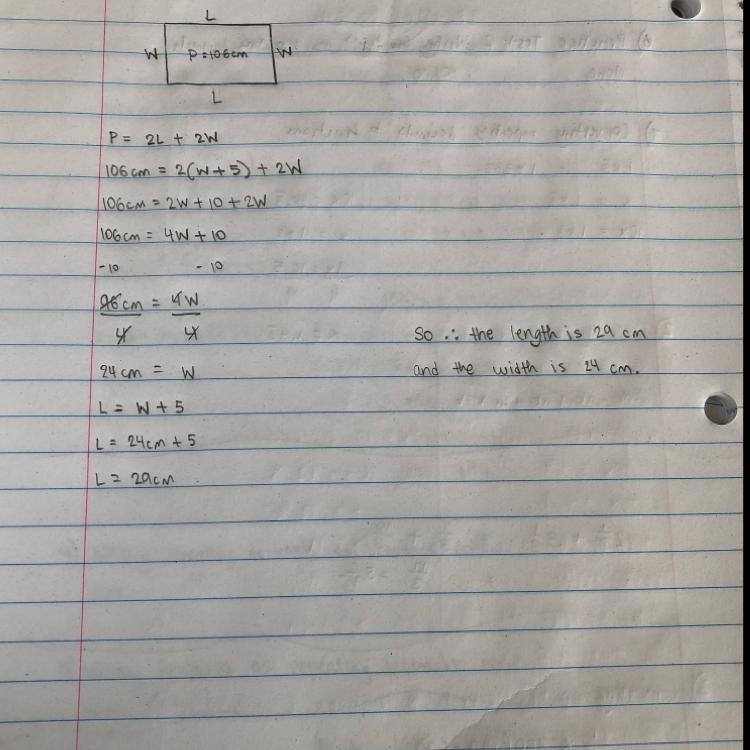 L
W P=106cm W
L
P = 2L + 2W
106cm = 2(W+5) + 2W
106cm = 2W + 10 + 2W
106cm = 4W + 10
-10 -10
96cm = 4W
4 4
24cm = W
L = W + 5
L = 24cm + 5
L = 29cm
So ∴ the length is 29 cm
and the width is 24 cm.